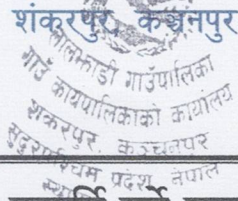 शंकरपुर, कञ्चनपुर
लालझाडी गाउँपालिका
गाउँ कार्यपालिकाको कार्यालय
शंकरपुर, कञ्चनपुर
सुदूरपश्चिम प्रदेश नेपाल